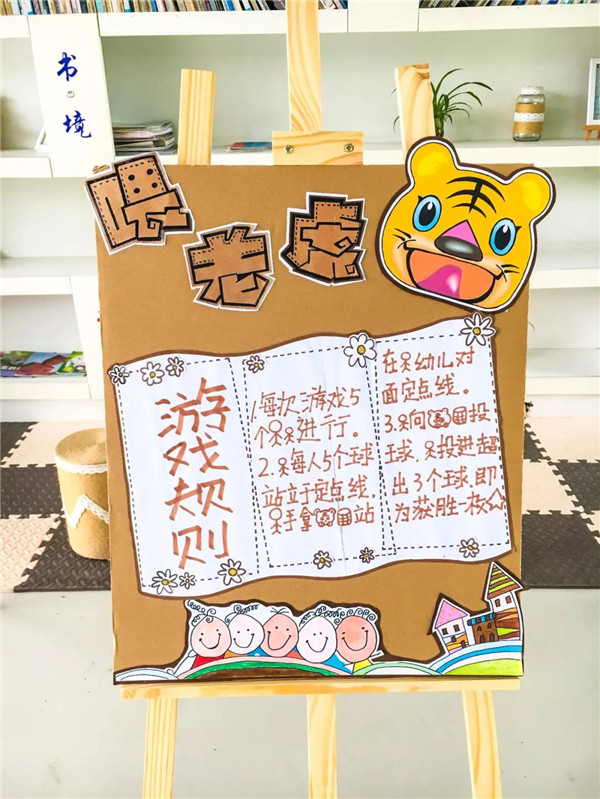 书·境
喂老虎
游戏规则
1.每次游戏5
个进行。
2.每人5个球
站立于定点线.
手拿站
在幼儿对
面定点线。
3.向投
球.投进超
出3个球.即
为获胜